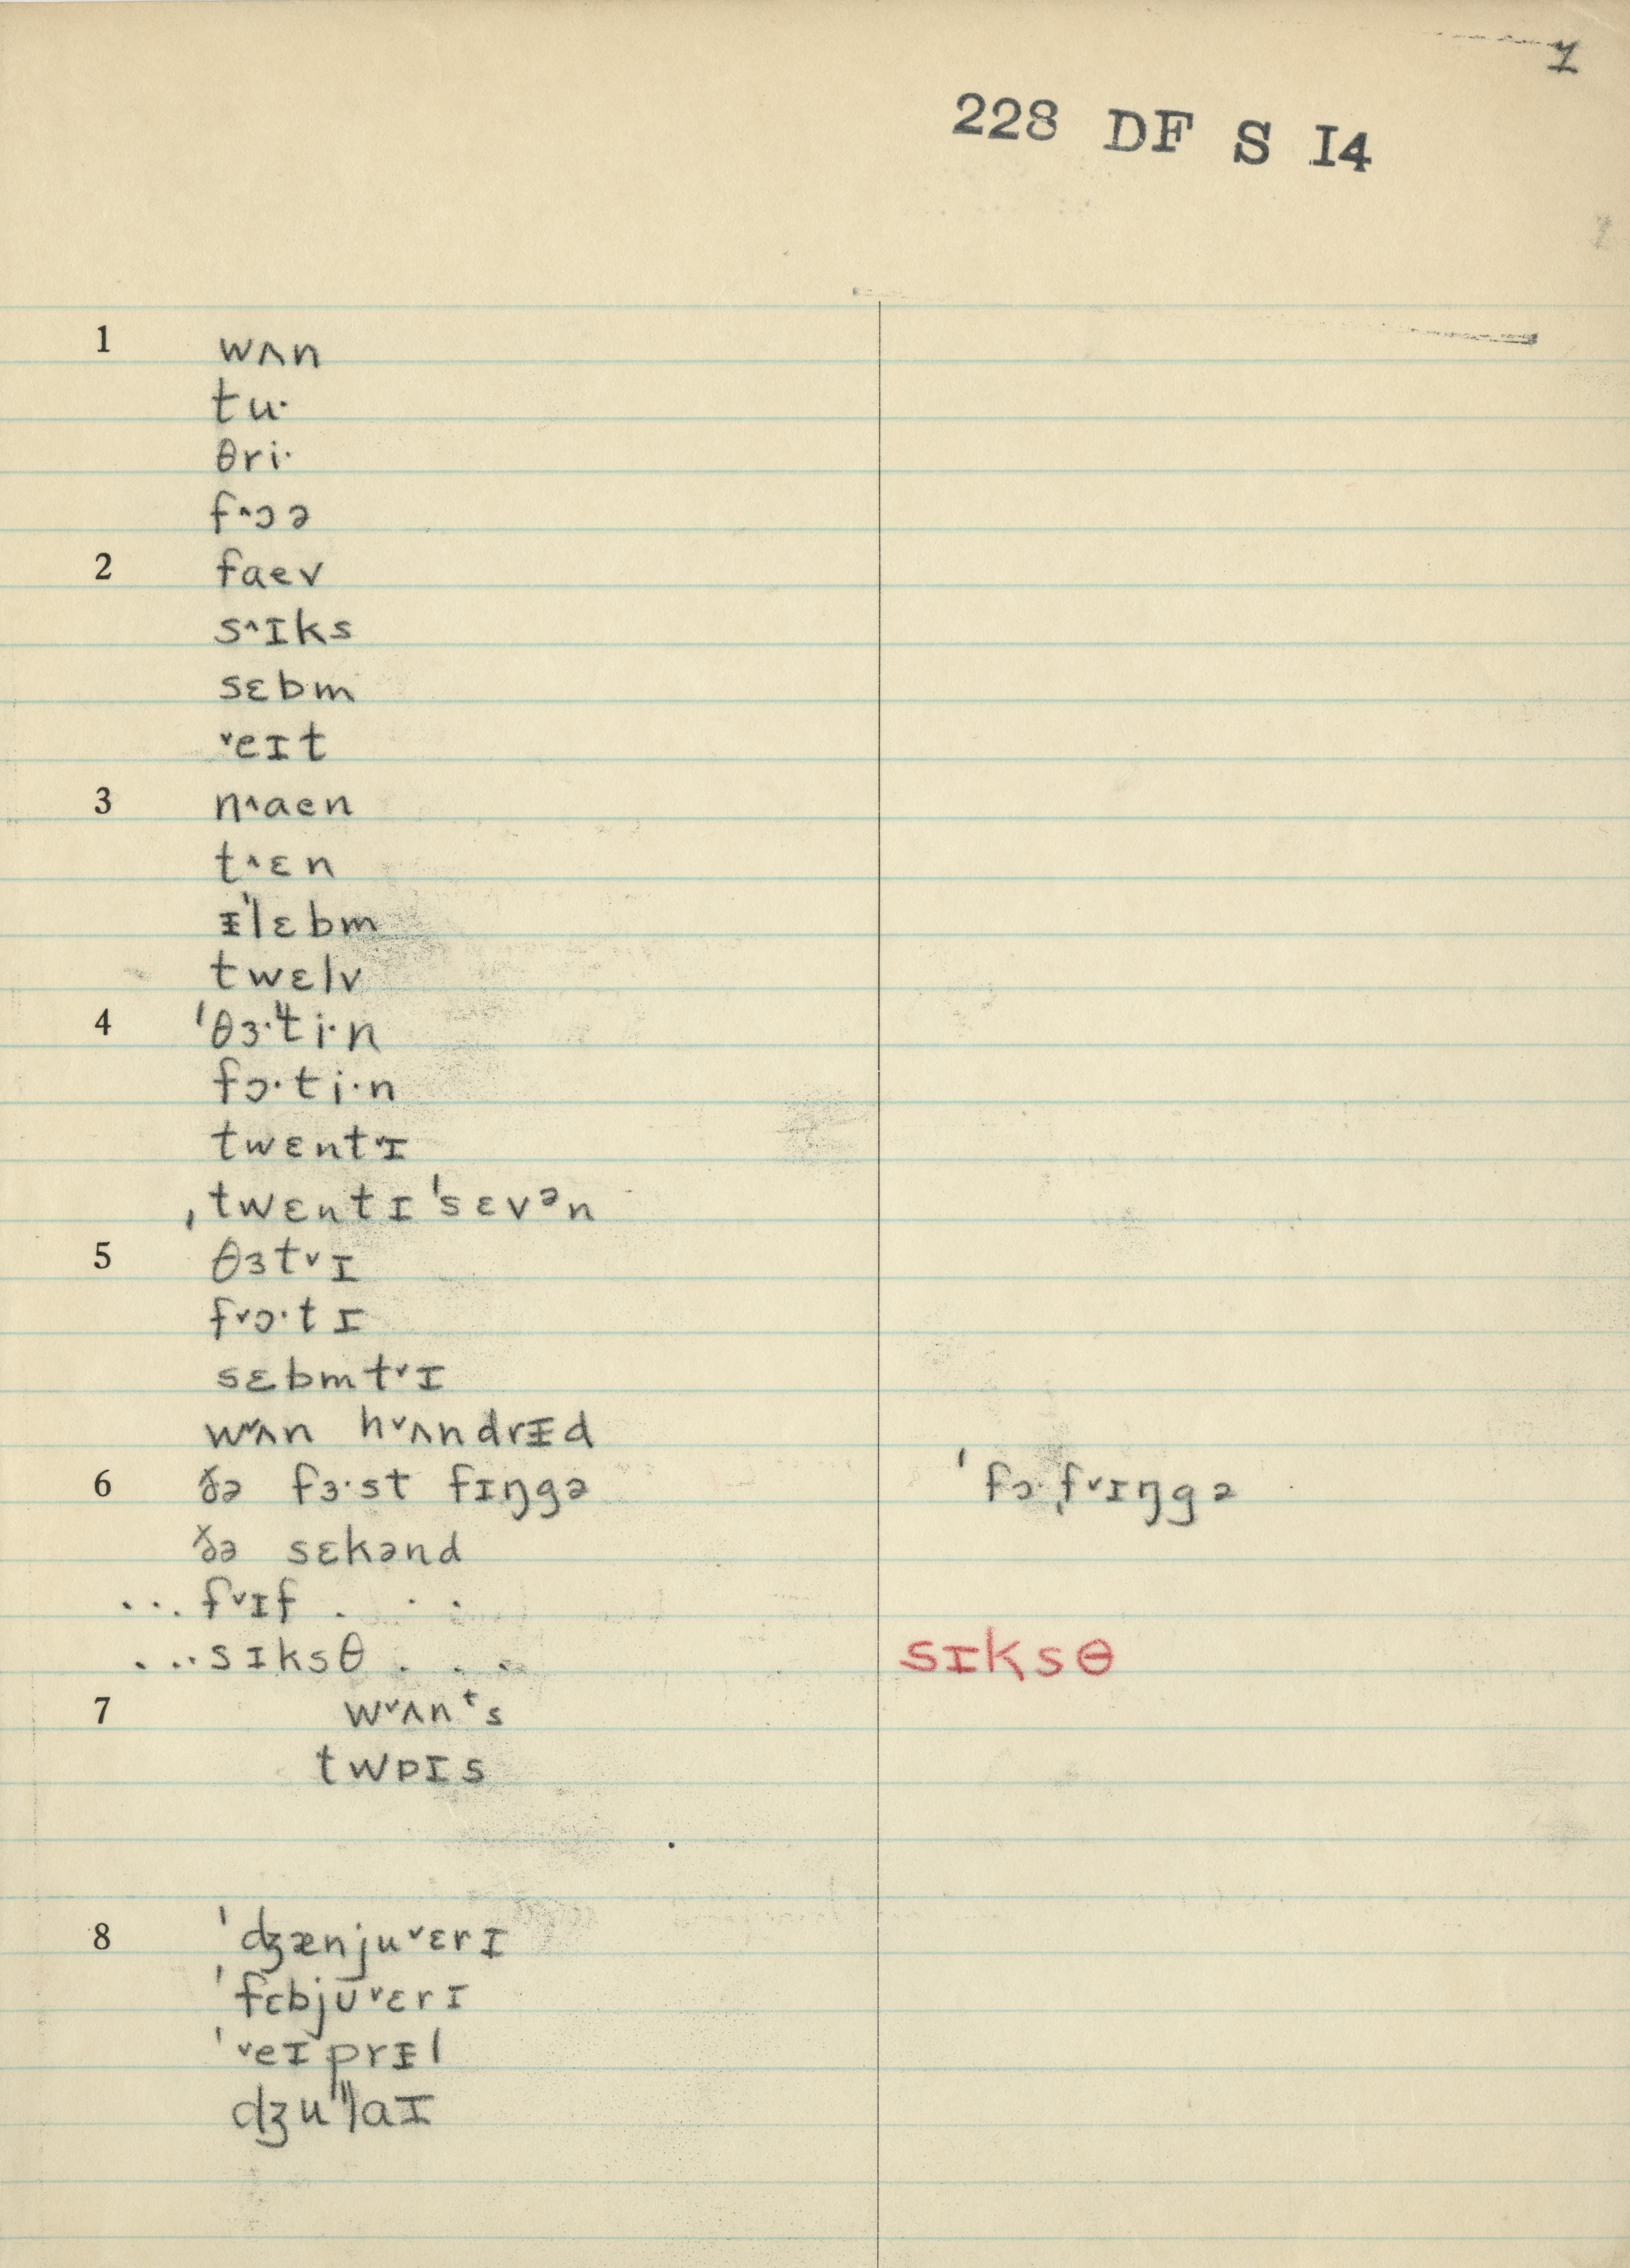 1
228 DF S I4
1 wʌn
tu·
θri·
f˄ɔə
2 faev
s˄ɪks
sɛbm
˅eɪt
3 n˄aen
t˄ɛn
ᵻˈlɛbm
twɛlv
4 ˈθɜ·ˈˈti·n
fɔ·ti·n
twɛnt˅ɪ
ˌtwɛntɪˈsɛvᵊn
5 θɜt˅ɪ
f˅ɔ·tɪ
sɛbmt˅ɪ
w˅ʌn h˅ʌndrᵻd
6 ðə fɜ·st fɪŋgə ˈfɔ·ˌf˅ɪŋgə
ðə sɛkənd
...f˅ɪf . . .
...sɪksθ . . . sɪksθ
7 w˅ʌnᵗs
twɒɪs
8 ˈdʒænju˅ɛrɪ
ˈfɛbjʊ˅ɛrɪ
ˈ˅eɪprᵻl
dʒuˈˈlaɪ